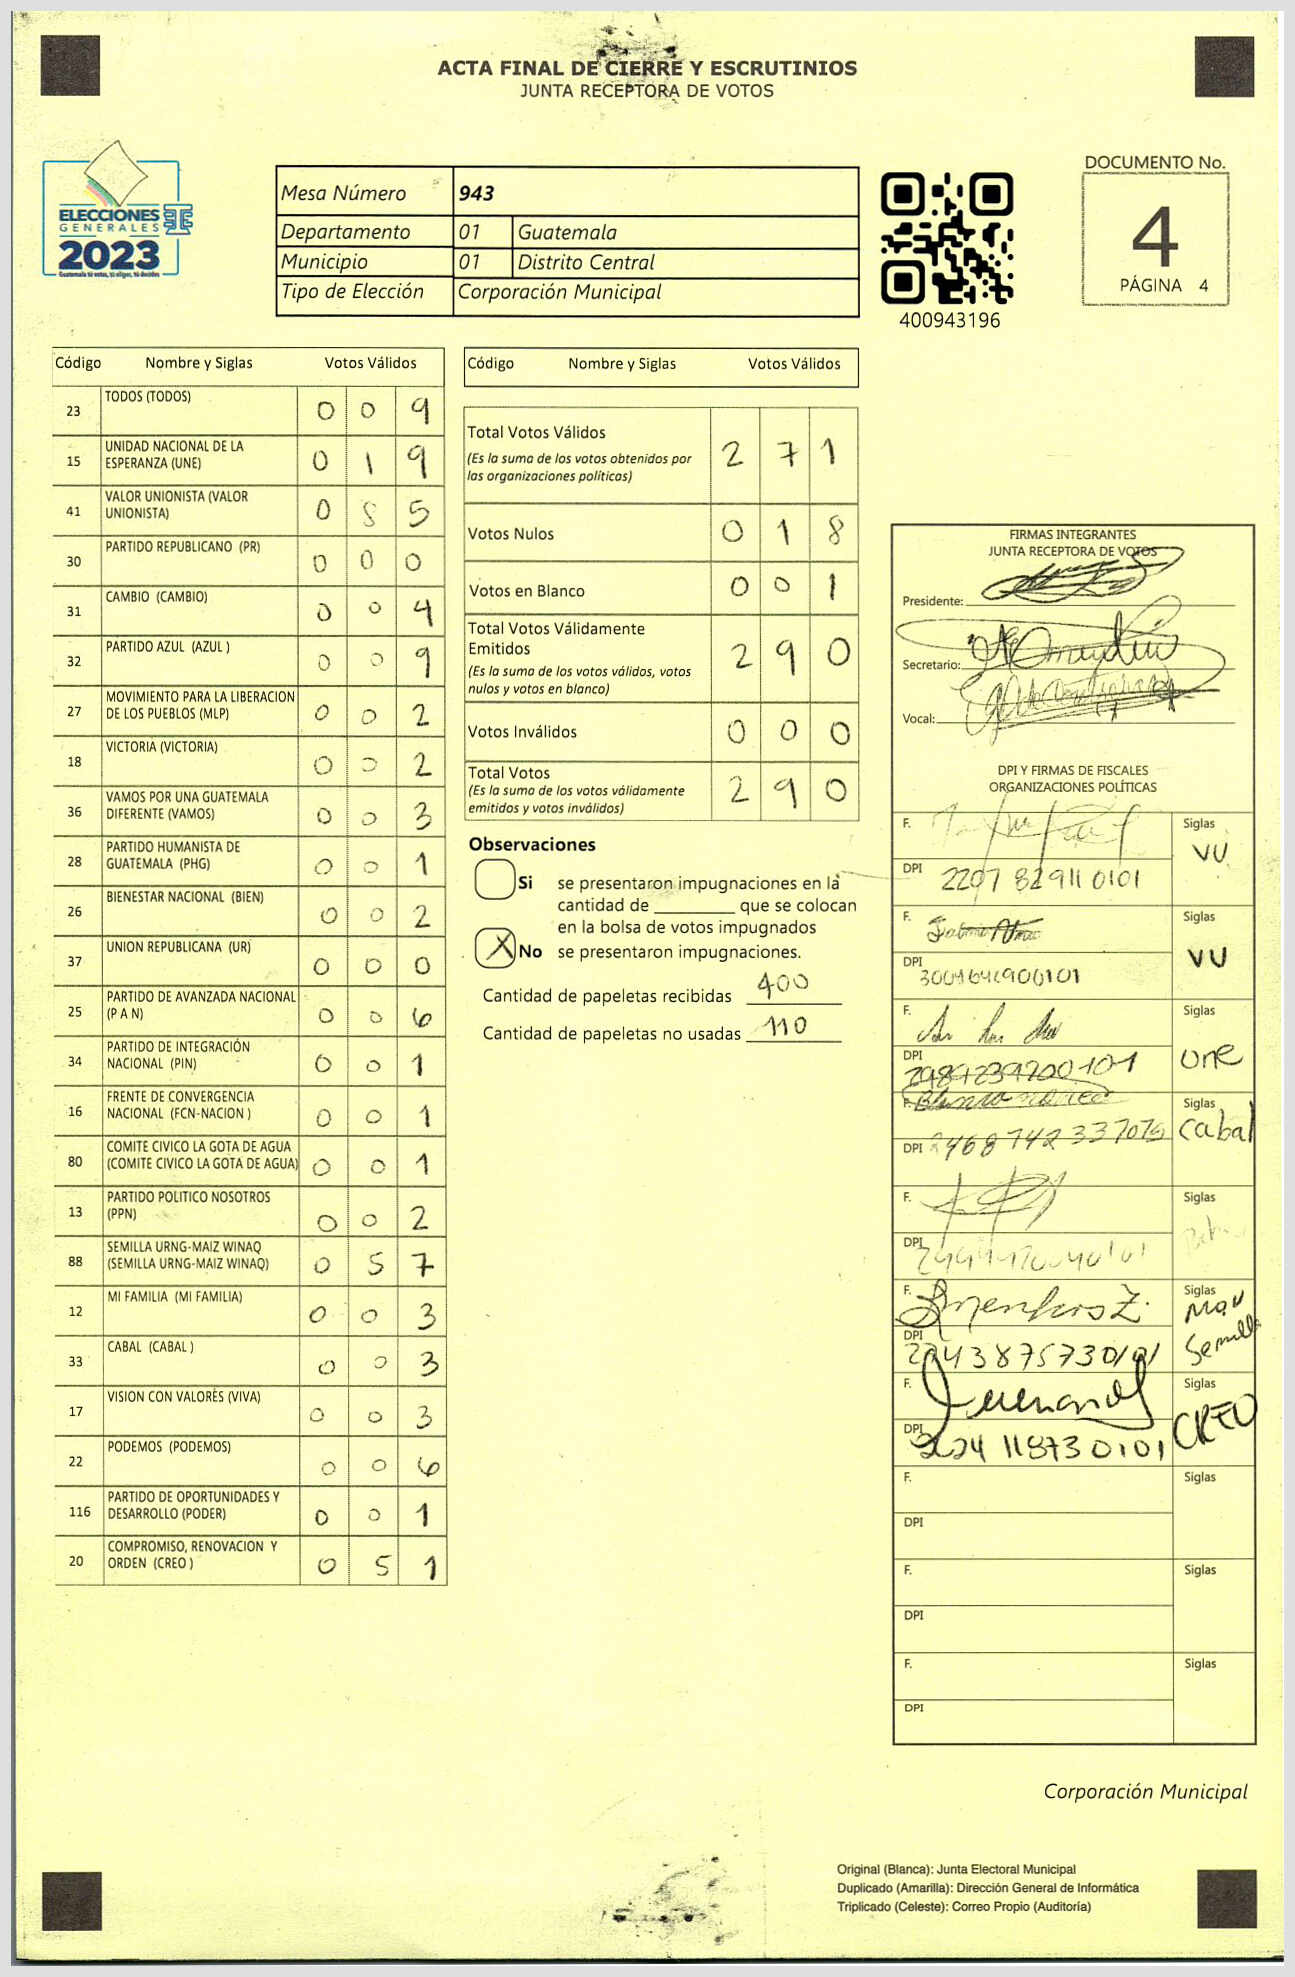 ACTA FINAL DE CIERRE Y ESCRUTINIOS
JUNTA RECEPTORA DE VOTOS
ELECCIONES
GENERALES
2023
Guatemala tú votas, tú eliges, tú decides
Mesa Número 943
Departamento 01 Guatemala
Municipio 01 Distrito Central
Tipo de Elección Corporación Municipal
400943196
DOCUMENTO No.
4
PÁGINA 4
Código Nombre y Siglas Votos Válidos
23 TODOS (TODOS) 0 0 9
15 UNIDAD NACIONAL DE LA ESPERANZA (UNE) 0 1 9
41 VALOR UNIONISTA (VALOR UNIONISTA) 0 8 5
30 PARTIDO REPUBLICANO (PR) 0 0 0
31 CAMBIO (CAMBIO) 0 0 4
32 PARTIDO AZUL (AZUL ) 0 0 9
27 MOVIMIENTO PARA LA LIBERACION DE LOS PUEBLOS (MLP) 0 0 2
18 VICTORIA (VICTORIA) 0 0 2
36 VAMOS POR UNA GUATEMALA DIFERENTE (VAMOS) 0 0 3
28 PARTIDO HUMANISTA DE GUATEMALA (PHG) 0 0 1
26 BIENESTAR NACIONAL (BIEN) 0 0 2
37 UNION REPUBLICANA (UR) 0 0 0
25 PARTIDO DE AVANZADA NACIONAL (P A N) 0 0 6
34 PARTIDO DE INTEGRACIÓN NACIONAL (PIN) 0 0 1
16 FRENTE DE CONVERGENCIA NACIONAL (FCN-NACION ) 0 0 1
80 COMITE CIVICO LA GOTA DE AGUA (COMITE CIVICO LA GOTA DE AGUA) 0 0 1
13 PARTIDO POLITICO NOSOTROS (PPN) 0 0 2
88 SEMILLA URNG-MAIZ WINAQ (SEMILLA URNG-MAIZ WINAQ) 0 5 7
12 MI FAMILIA (MI FAMILIA) 0 0 3
33 CABAL (CABAL ) 0 0 3
17 VISION CON VALORES (VIVA) 0 0 3
22 PODEMOS (PODEMOS) 0 0 6
116 PARTIDO DE OPORTUNIDADES Y DESARROLLO (PODER) 0 0 1
20 COMPROMISO, RENOVACION Y ORDEN (CREO ) 0 5 1
Código Nombre y Siglas Votos Válidos
Total Votos Válidos 2 7 1
(Es la suma de los votos obtenidos por
las organizaciones políticas)
Votos Nulos 0 1 8
Votos en Blanco 0 0 1
Total Votos Válidamente
Emitidos 2 9 0
(Es la suma de los votos válidos, votos
nulos y votos en blanco)
Votos Inválidos 0 0 0
Total Votos 2 9 0
(Es la suma de los votos válidamente
emitidos y votos inválidos)
Observaciones
Si se presentaron impugnaciones en la
cantidad de ________ que se colocan
en la bolsa de votos impugnados
X No se presentaron impugnaciones.
Cantidad de papeletas recibidas 400
Cantidad de papeletas no usadas 110
FIRMAS INTEGRANTES
JUNTA RECEPTORA DE VOTOS
Presidente:
Secretario:
Vocal:
DPI Y FIRMAS DE FISCALES
ORGANIZACIONES POLÍTICAS
F. Siglas VU
DPI 2207 82911 0101
F. Siglas VU
DPI
F. Siglas une
DPI
F. Siglas Cabal
DPI 2468 742337075
F. Siglas
DPI
F. Siglas Semilla
DPI
F. Siglas CREO
DPI
F. Siglas
DPI
F. Siglas
DPI
F. Siglas
DPI
Corporación Municipal
Original (Blanca): Junta Electoral Municipal
Duplicado (Amarilla): Dirección General de Informática
Triplicado (Celeste): Correo Propio (Auditoría)